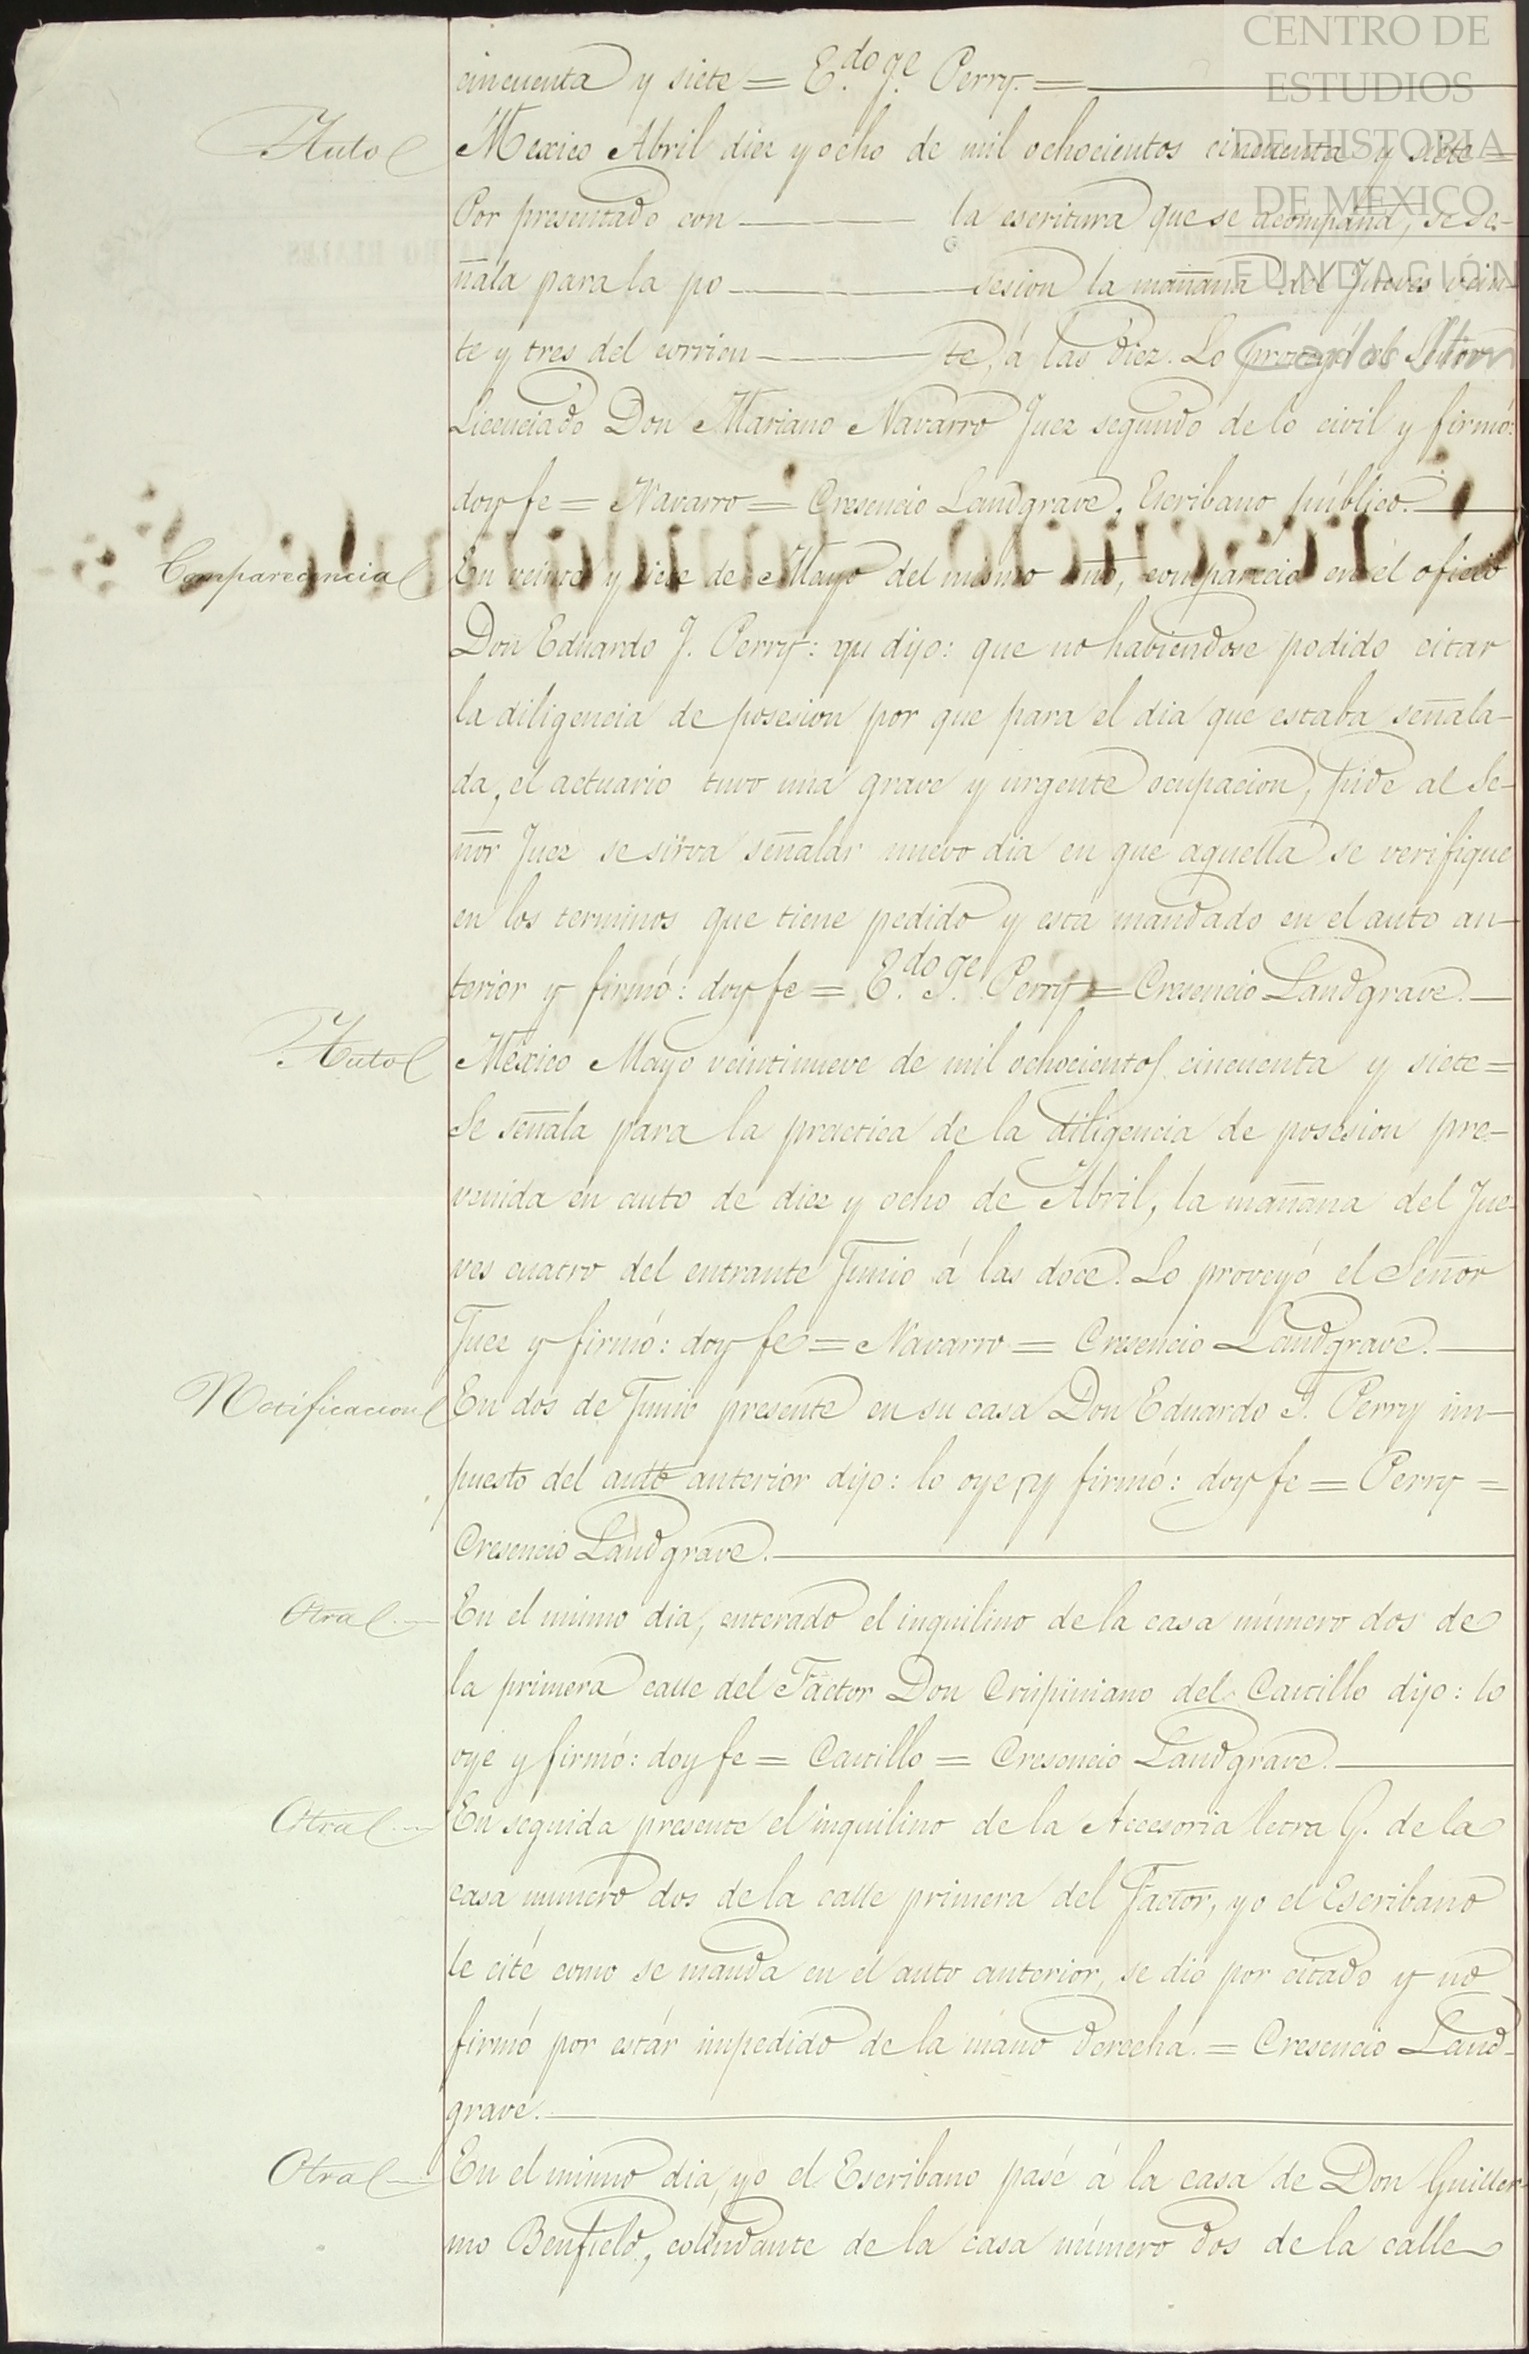 CENTRO DE
ESTUDIOS
DE HISTORIA
DE MEXICO
FUNDACIÓN
Carlos Slim
cincuenta y siete = E.do J.ge Perry. =
Auto Mexico Abril diez y ocho de mil ochocientos cincuenta y siete =
Por presentado con — la escritura que se acompaña, se se-
ñala para la po — sesion la mañana del Jueves vein-
te y tres del corrien — te, á las diez. Lo proveyó el Señor
Licenciado Don Mariano Navarro Juez segundo de lo civil y firmó:
doy fe = Navarro = Cresencio Landgrave, Escribano público.
Comparecencia En veinte y siete de Mayo del mismo año, compareció en el oficio
Don Eduardo J. Perry: y dijo: que no habiendose podido citar
la diligencia de posesion por que para el dia que estaba señala-
da, el actuario tuvo una grave y urgente ocupacion, pide al Se-
ñor Juez se sirva señalar nuevo dia en que aquella se verifique
en los terminos que tiene pedido y está mandado en el auto an-
terior y firmó: doy fe = E.do J.ge Perry = Cresencio Landgrave.
Auto México Mayo veintinueve de mil ochocientos cincuenta y siete =
Se señala para la practica de la diligencia de posesion pre-
venida en auto de diez y ocho de Abril, la mañana del Jue-
ves cuatro del entrante Junio á las doce. Lo proveyó el Señor
Juez y firmó: doy fe = Navarro = Cresencio Landgrave.
Notificacion En dos de Junio presente en su casa Don Eduardo J. Perry im-
puesto del auto anterior dijo: lo oye, y firmó: doy fe = Perry =
Cresencio Landgrave.
Otra En el mismo dia, enterado el inquilino de la casa número dos de
la primera calle del Factor Don Crispiniano del Castillo dijo: lo
oye y firmó: doy fe = Castillo = Cresencio Landgrave.
Otra En seguida presente el inquilino de la Accesoria letra G. de la
casa numero dos de la calle primera del Factor, yo el Escribano
le cité como se manda en el auto anterior, se dió por citado y no
firmó por estár impedido de la mano derecha. = Cresencio Land-
grave.
Otra En el mismo dia, yo el Escribano pasé á la casa de Don Guiller-
mo Benfield, colindante de la casa número dos de la calle